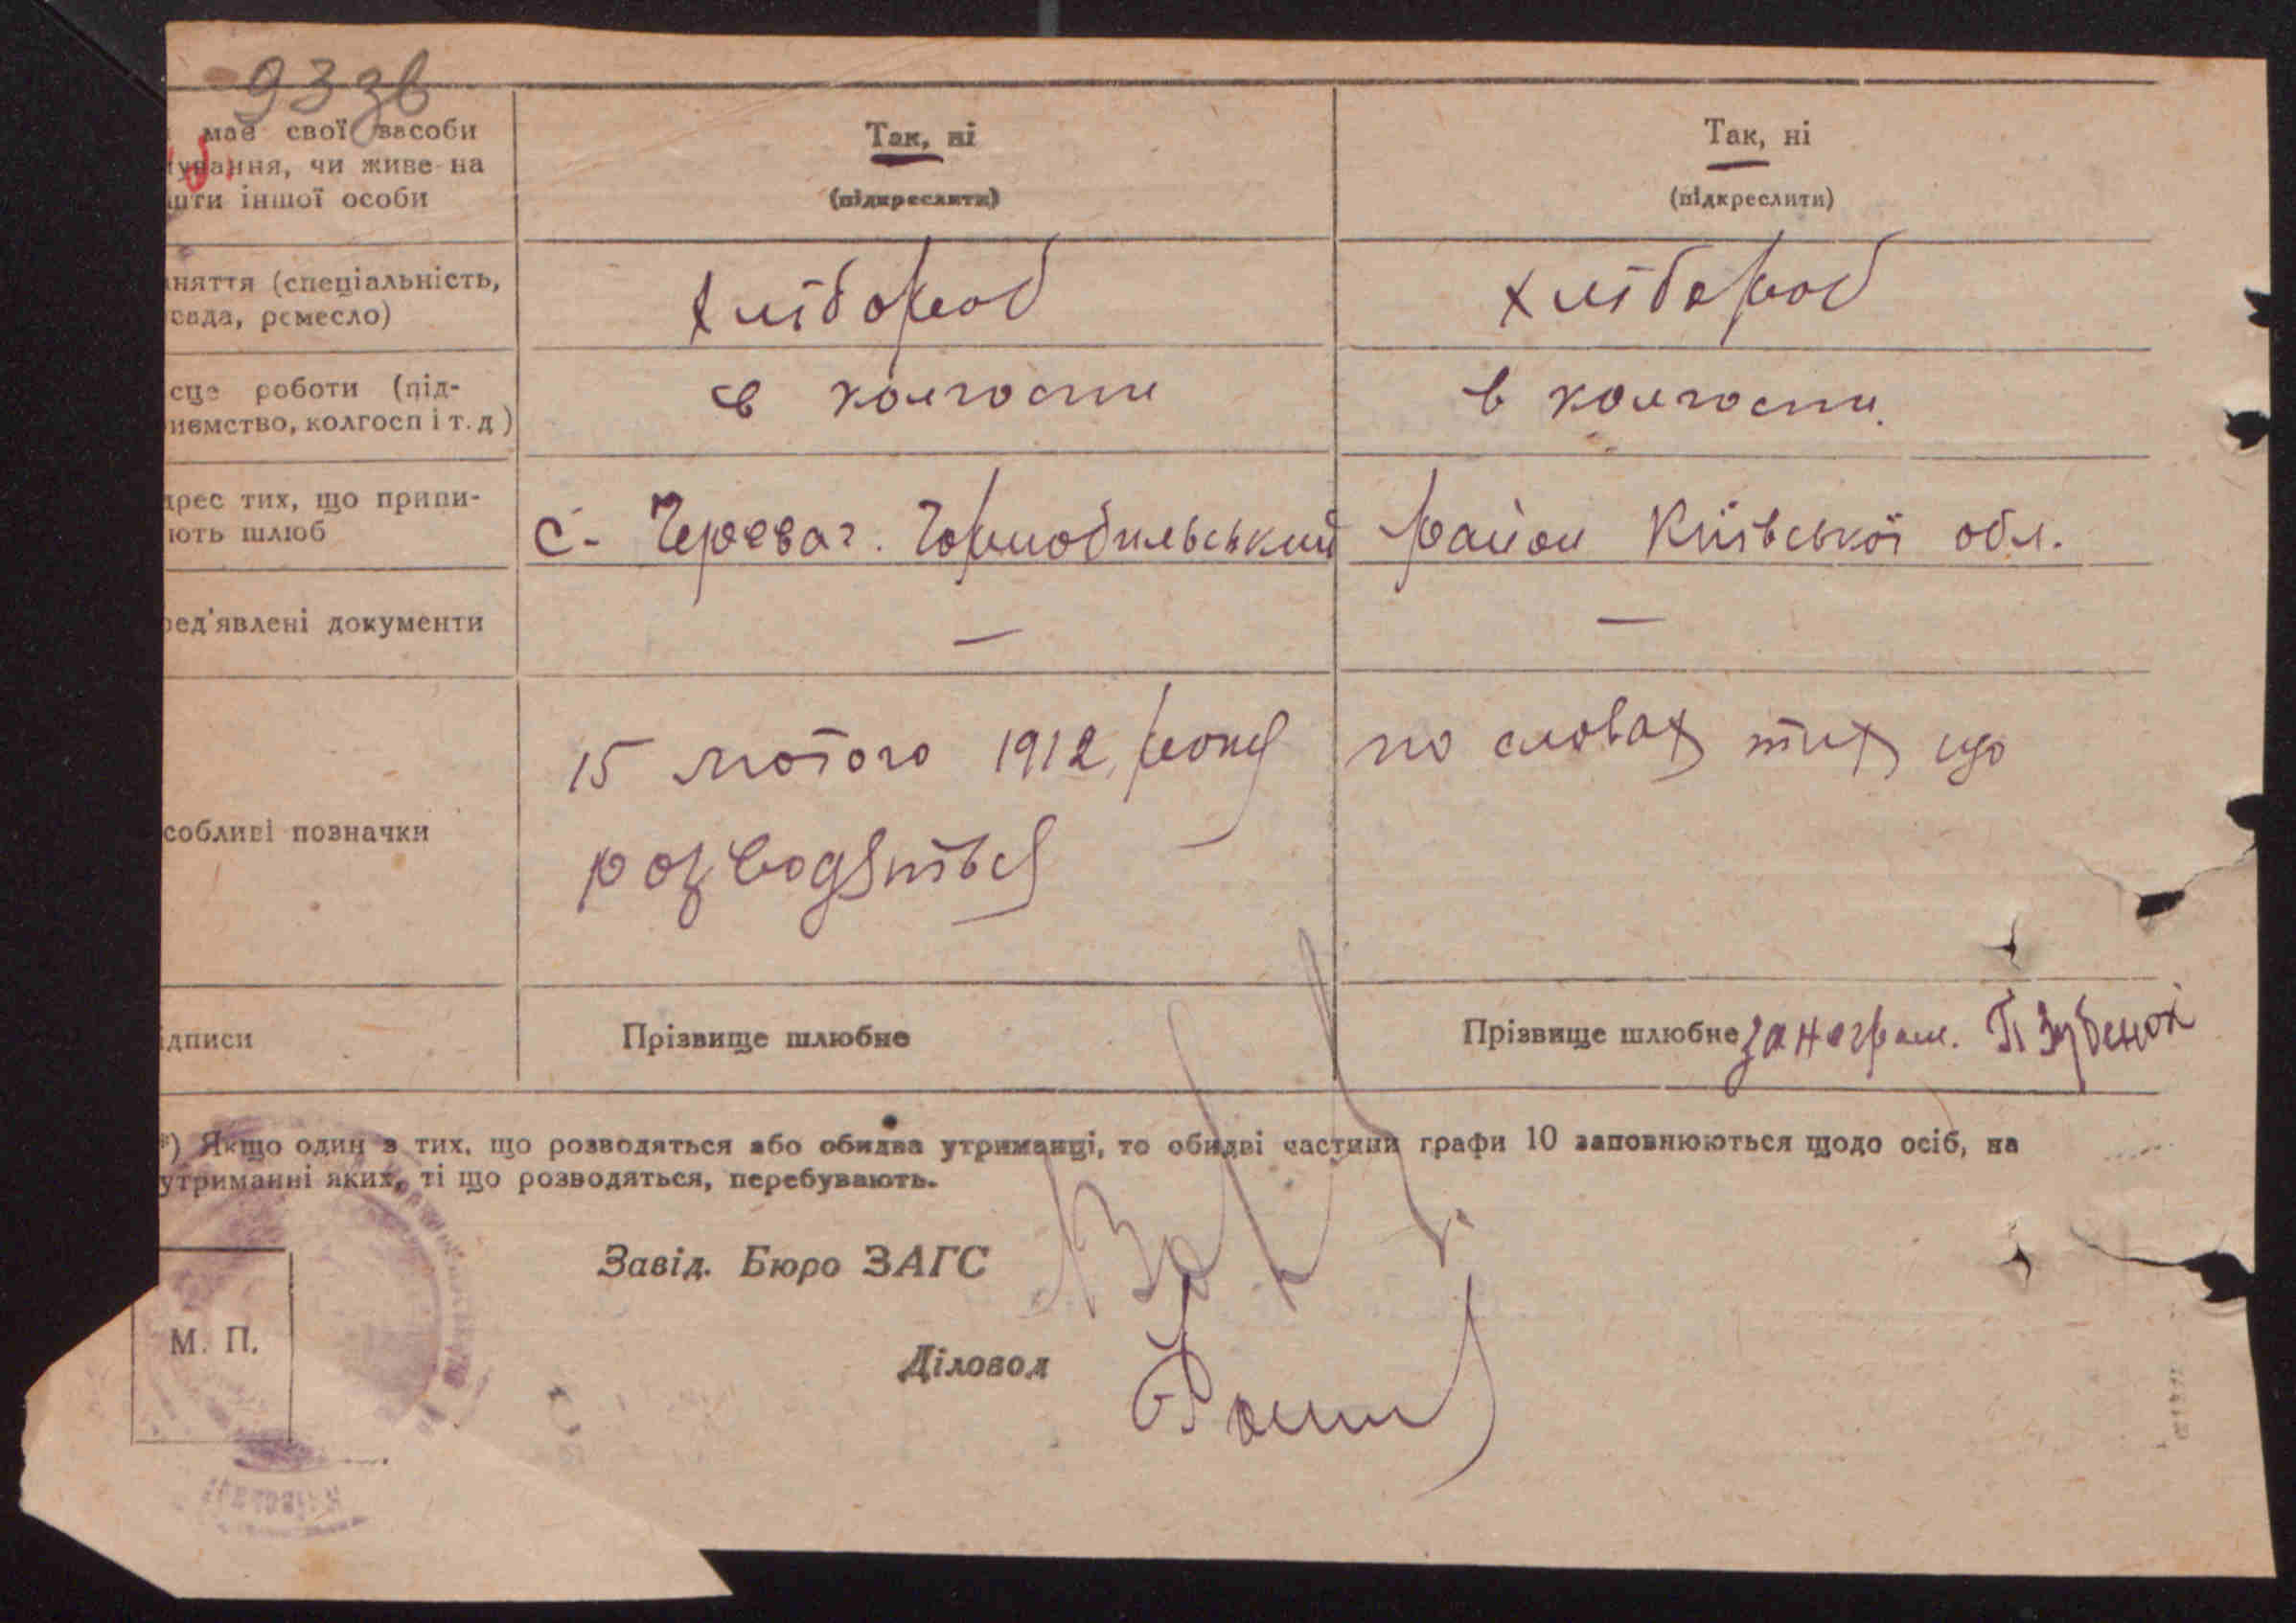 93 зв
має свої засоби
ування, чи живе на
шти іншої особи
Так, ні
(підкреслити)
Так, ні
(підкреслити)
няття (спеціальність,
сада, ремесло)
хлібороб
хлібороб
сце роботи (під-
иємство, колгосп і т. д)
в колгоспи
в колгоспи.
дрес тих, що припи-
ють шлюб
с. Черевач. Чорнобильський район Київської обл.
ред'явлені документи
—
—
собливі позначки
15 лютого 1912 року по словах тих що
розводяться
ідписи
Прізвище шлюбне
Прізвище шлюбне за неграм. П Зубенок
*) Якщо один з тих, що розводяться або обидва утриманці, то обидві частини графи 10 заповнюються щодо осіб, на
утриманні яких, ті що розводяться, перебувають.
Завід. Бюро ЗАГС
М. П.
Діловод